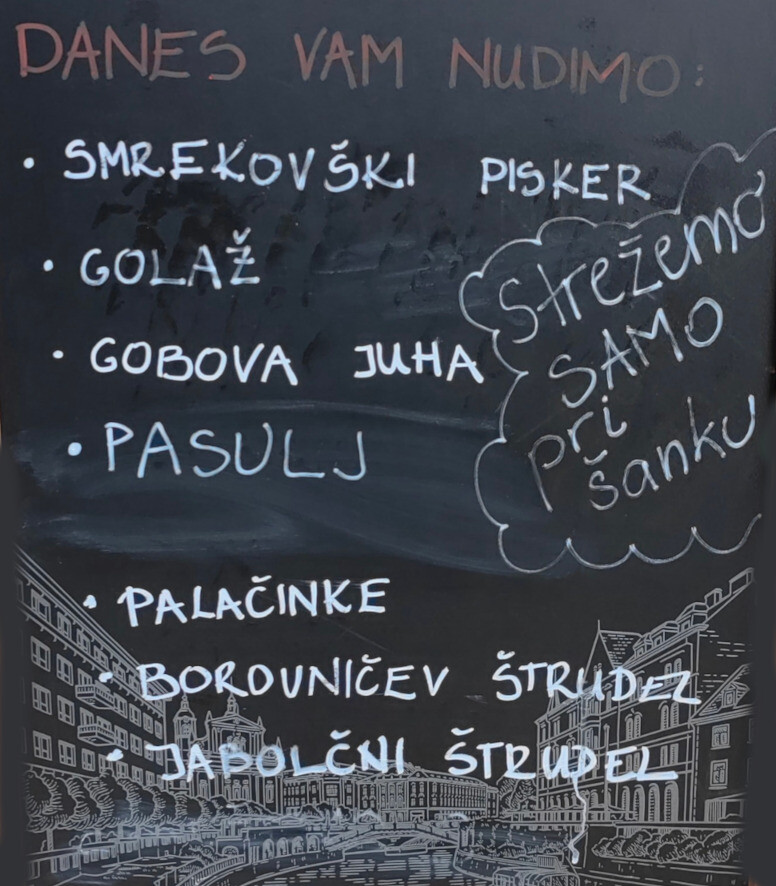 DANES VAM NUDIMO:
• SMREKOVŠKI PISKER
• GOLAŽ
• GOBOVA JUHA
• PASULJ
Strežemo
SAMO
pri
šanku
• PALAČINKE
• BOROVNIČEV ŠTRUDEL
• JABOLČNI ŠTRUDEL